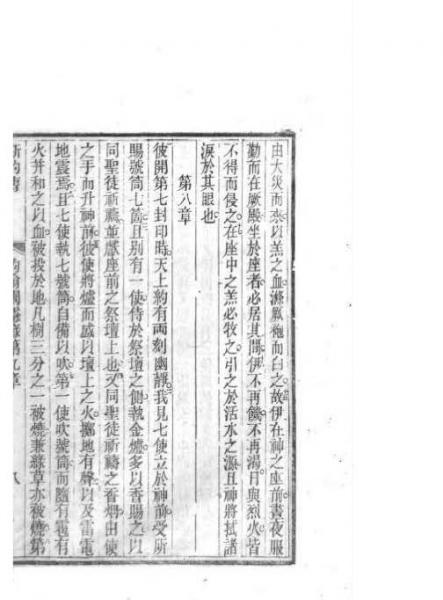 由大災而來以羔之血滌厥袍而白之故伊在神之座前晝夜服
勤而在厥殿坐於座者必居其間伊不再饑不再渴日與烈火皆
不得而侵之在座中之羔必牧之引之於活水之源且神將拭諸
淚於其眼也
第八章
彼開第七封印時天上約有兩刻幽靜我見七使立於神前受所
賜號筒七箇且別有一使侍於祭壇之側執金爐多以香賜之以
同聖徒祈禱並獻座前之祭壇上也又同聖徒祈禱之香烟由使
之手而升神前彼使將爐而盛以壇上之火擲地有聲以及雷電
地震焉且七使執七號筒自備以吹第一使吹號筒而隨有雹有
火并和之以血被投於地凡樹三分之一被燒兼綠草亦被燒第
新約書
第九章
八